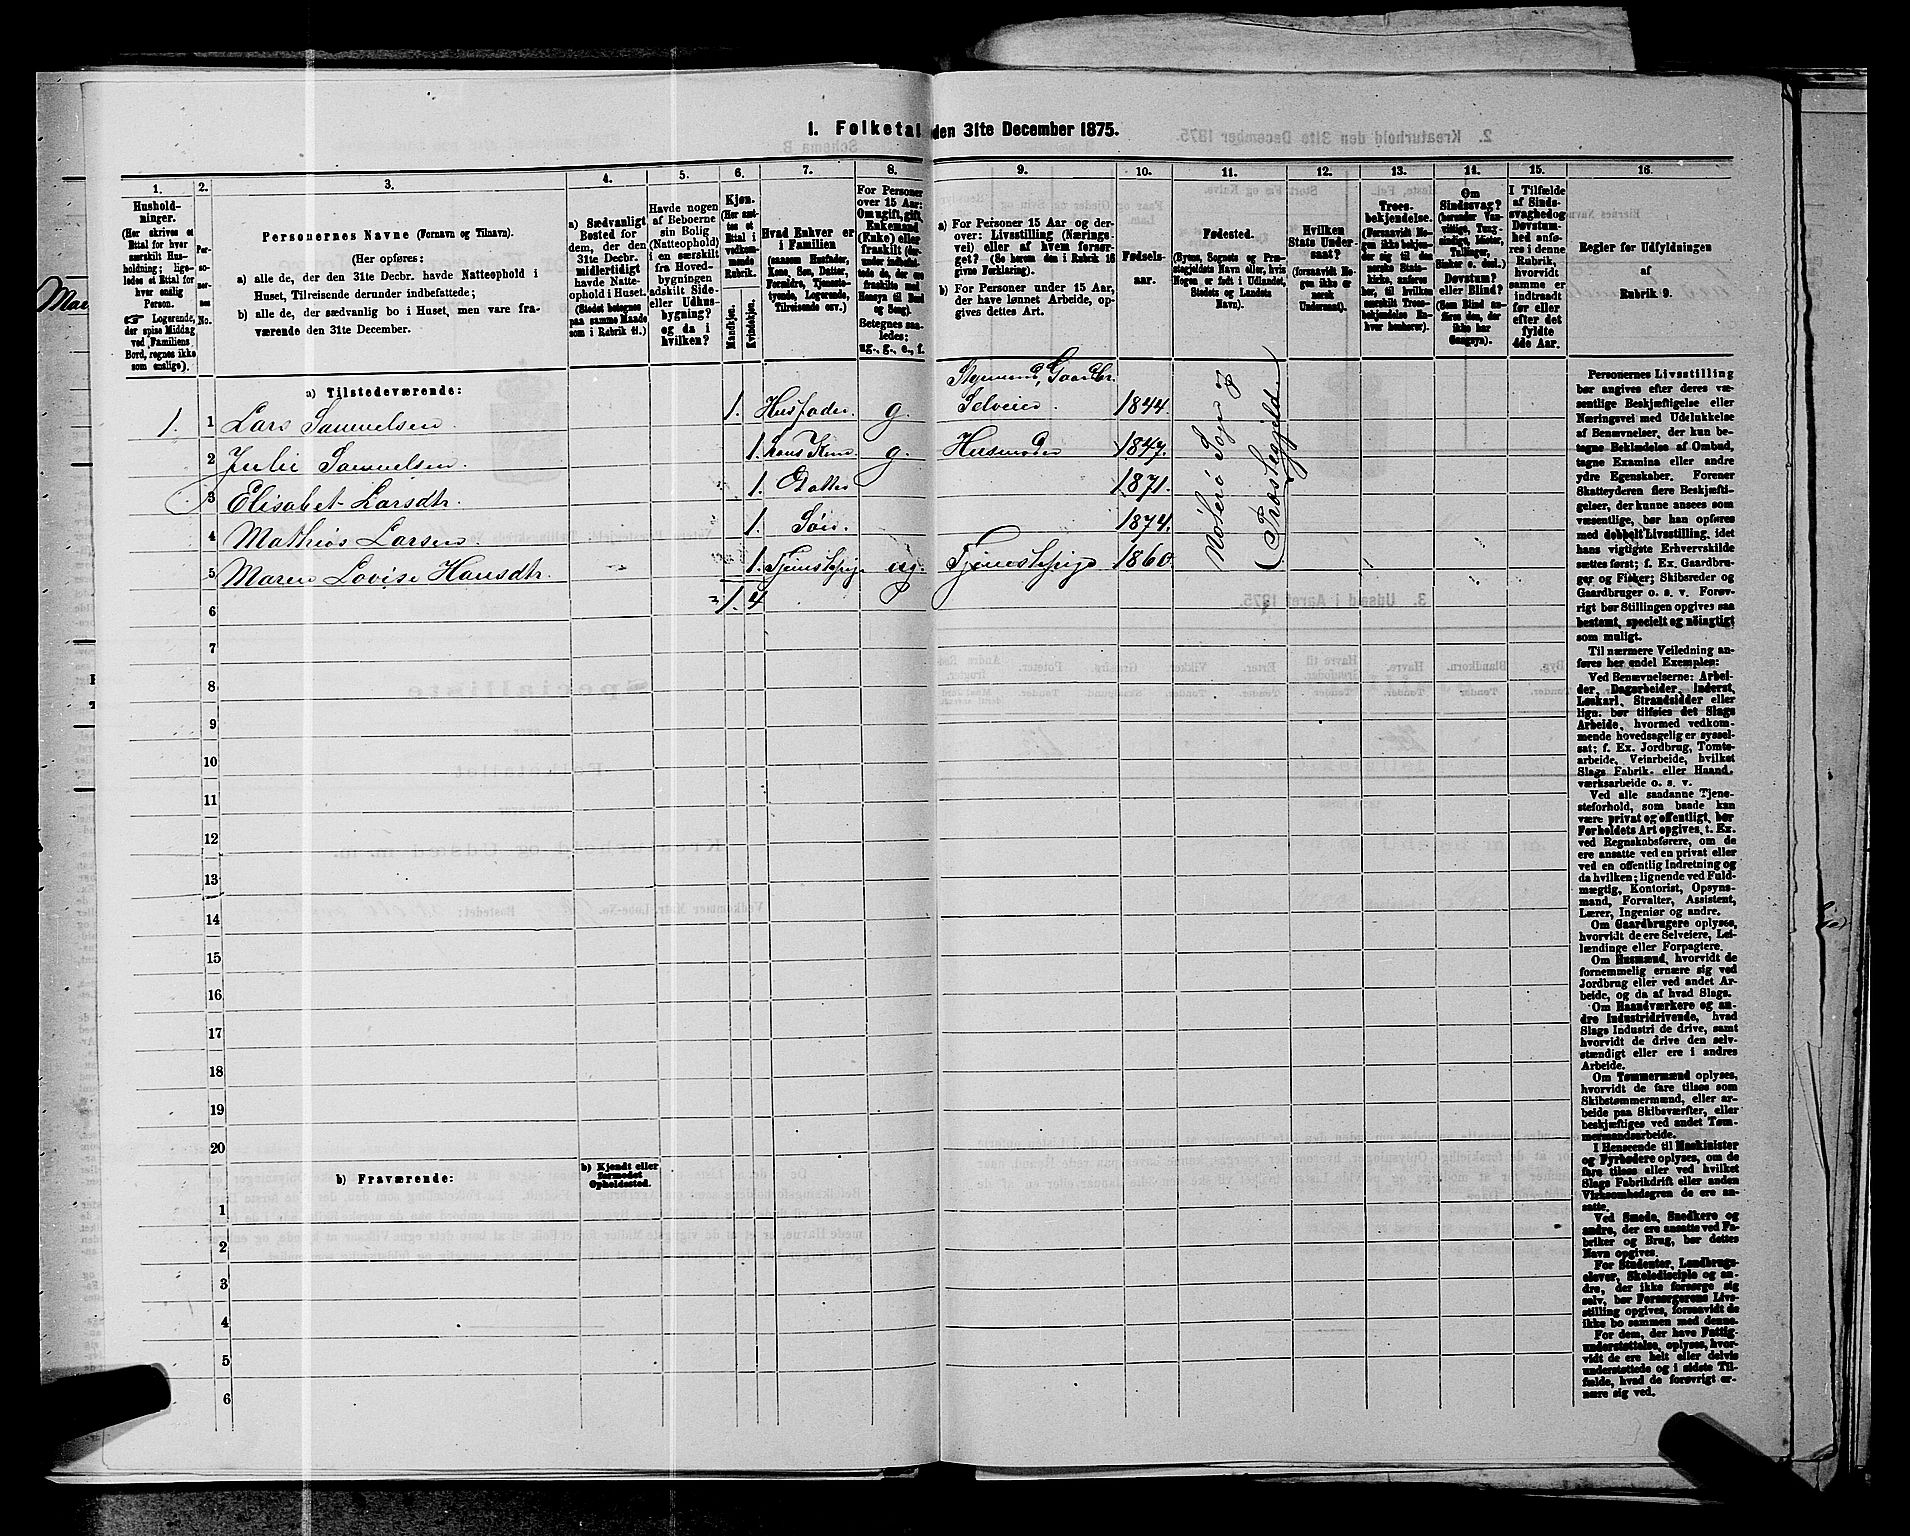 1. Folketal den 31te December 1875.
1.
2.
3.
4.
5.
6.
7.
8.
9.
10.
11.
12.
13.
14.
15.
16.
Hushold-
ninger.
(Her skrives et
Ettal for hver
særskilt Hus-
holdning; lige-
ledes et Ettal for
hver enslig
Person.
☞ Logerende,
der spise Middag
ved Familiens
Bord, regnes ikke
som enslige).
Per-
so-
nernes
No.
Personernes Navne (Fornavn og Tilnavn).
(Her opføres:
a) alle de, der den 31te Decbr. havde Natteophold i
Huset, Tilreisende derunder indbefattede;
b) alle de, der sædvanlig bo i Huset, men vare fra-
værende den 31te December.
a) Sædvanligt
Bosted for
dem, der den
31te Decbr.
midlertidigt
havde Natte-
ophold i Huset.
(Stedet betegnes
paa samme Maade
som i Rubrik 11.)
Havde nogen
af Beboerne
sin Bolig
(Natteophold)
i en særskilt
fra Hoved-
bygningen
adskilt Side-
eller Udhus-
bygning?
og da i
hvilken?
Kjøn.
(Her sæt-
tes et
Ettal i
vedkom-
mende
Rubrik.
Mandkjøn.
Kvindekjøn.
Hvad Enhver er
i Familien
(saasom Husfader,
Kone, Søn, Datter,
Forældre, Tjeneste-
tyende, Logerende,
Tilreisende osv.)
For Personer
over 15 Aar:
Om ugift, gift,
Enkemand
(Enke) eller
fraskilt (der-
under indbefat-
tede de, der ere
fraskilte med
Hensyn til Bord
og Seng).
Betegnes saa-
ledes:
ug., g., e., f.
a) For Personer 15 Aar og der-
over: Livsstilling (Nærings-
vei) eller af hvem forsør-
get? (Se herom den i Rubrik 16
givne Forklaring).
b) For Personer under 15 Aar,
der have lønnet Arbeide, op-
gives dettes Art.
Fødsels-
aar.
Fødested.
(Byens, Sognets og Præ-
stegjeldets Navn eller, hvis
Nogen er født i Udlandet,
Stedets og Landets
Navn).
Hvilken
Stats Under-
saat?
(forsaavidt No-
gen ikke er
norsk
Undersaat).
Troes-
bekjendelse.
(Forsaavidt No-
gen ikke bekjen-
der sig til den
norske Stats-
kirke, anføres
her, til hvilken
særskilt Troes-
bekjendelse En-
hver henhører).
Om
Sindssvag?
(herunder Van-
vittige, Tung-
sindige, Idioter,
Tullinger,
Sinker o. desl.)
Døvstum?
eller Blind?
(Som Blind an-
føres den, der
ikke har
Gangsyn).
I Tilfælde
af Sinds-
svaghed og
Døvstum-
hed anfø-
res i denne
Rubrik,
hvorvidt
samme er
indtraadt
før eller
efter det
fyldte
4de Aar.
Regler for Udfyldningen
af
Rubrik 9.
a) Tilstedeværende:
Gaardbr.
1. 1 Lars Samuelsen 1. Husfader g. Selveier 1844
2 Julie Samuelsen. 1. Hans Kone g. Husmoder 1847.
3 Elisabet Larsdtr. 1. Datter 1871.
4 Mathias Larsen. 1. Søn. 1874.
5 Maren Lovise Hansdtr. 1. Tjenestepige ug. Tjenestepige 1860
Nøterø Sogn &
Præstegjeld.
6 1. 4
7
8
9
10
11
12
13
14
15
16
17
18
19
20
b) Fraværende:
b) Kjendt eller
formodet
Opholdssted.
1
2
3
4
5
6
Personernes Livsstilling
bør angives efter deres væ-
sentlige Beskjæftigelse eller
Næringsvei med Udelukkelse
af Benævnelser, der kun be-
tegne Beklædelse af Ombud,
tagne Examina eller andre
ydre Egenskaber. Forener
Skatteyderen flere Beskjæfti-
gelser, der kunne ansees som
væsentlige, bør han opføres
med dobbelt Livsstilling, idet
hans vigtigste Erhvervskilde
sættes først; f. Ex. Gaardbru-
ger og Fisker; Skibsreder og
Gaardbruger o. s. v. Forøv-
rigt bør Stillingen opgives saa
bestemt, specielt og nøiagtigt
som muligt.
Til nærmere Veiledning an-
føres her endel Exempler:
Ved Benævnelserne: Arbei-
der, Dagarbeider, Inderst,
Løskarl, Strandsidder eller
lign. bør tilføies det Slags
Arbeide, hvormed vedkom-
mende hovedsagelig er syssel-
sat; f. Ex. Jordbrug, Tomte-
arbeide, Veiarbeide, hvilket
Slags Fabrik- eller Haand-
værksarbeide o. s. v.
Ved alle saadanne Tjene-
steforhold, som baade kan
være privat og offentligt, bør
Forholdets Art opgives, t. Ex.
ved Regnskabsførere, om de
ere ansatte ved en privat eller
ved en offentlig Indretning og
da hvilken; lignende ved Fuld-
mægtig, Kontorist, Opsyns-
mand, Forvalter, Assistent,
Lærer, Ingeniør og andre.
Om Gaardbrugere oplyses,
hvorvidt de ere Selveiere, Lei-
lændinge eller Forpagtere.
Om Husmænd, hvorvidt de
fornemmelig ernære sig ved
Jordbrug eller ved andet Ar-
beide, og da af hvad Slags.
Om Haandværkere og an-
dre Industridrivende, hvad
Slags Industri de drive, samt
hvorvidt de drive den selv-
stændigt eller ere i andres
Arbeide.
Om Tømmermænd oplyses,
hvorvidt de fare tilsøs som
Skibstømmermænd, eller ar-
beide paa Skibsværfter, eller
beskjæftiges ved andet Tøm-
mermandsarbeide.
I Henseende til Maskinister
og Fyrbødere oplyses, om de
fare tilsøs eller ved hvilket
Slags Fabrikdrift eller anden
Virksomhedsgren de ere an-
satte.
Ved Smede, Snedkere og
andre, der ere ansatte ved Fa-
briker og Brug, bør dettes
Navn opgives.
For Studenter, Landbrugs-
elever, Skoledisciple og an-
dre, der ikke forsørge sig
selv, bør Forsørgerens Livs-
stilling opgives, forsaavidt de
ikke bo sammen med denne.
For dem, der have Fattig-
understøttelse, oplyses, hvor-
vidt de ere helt eller delvis
understøttede og i sidste Til-
fælde, hvad de forøvrigt er-
nære sig ved.